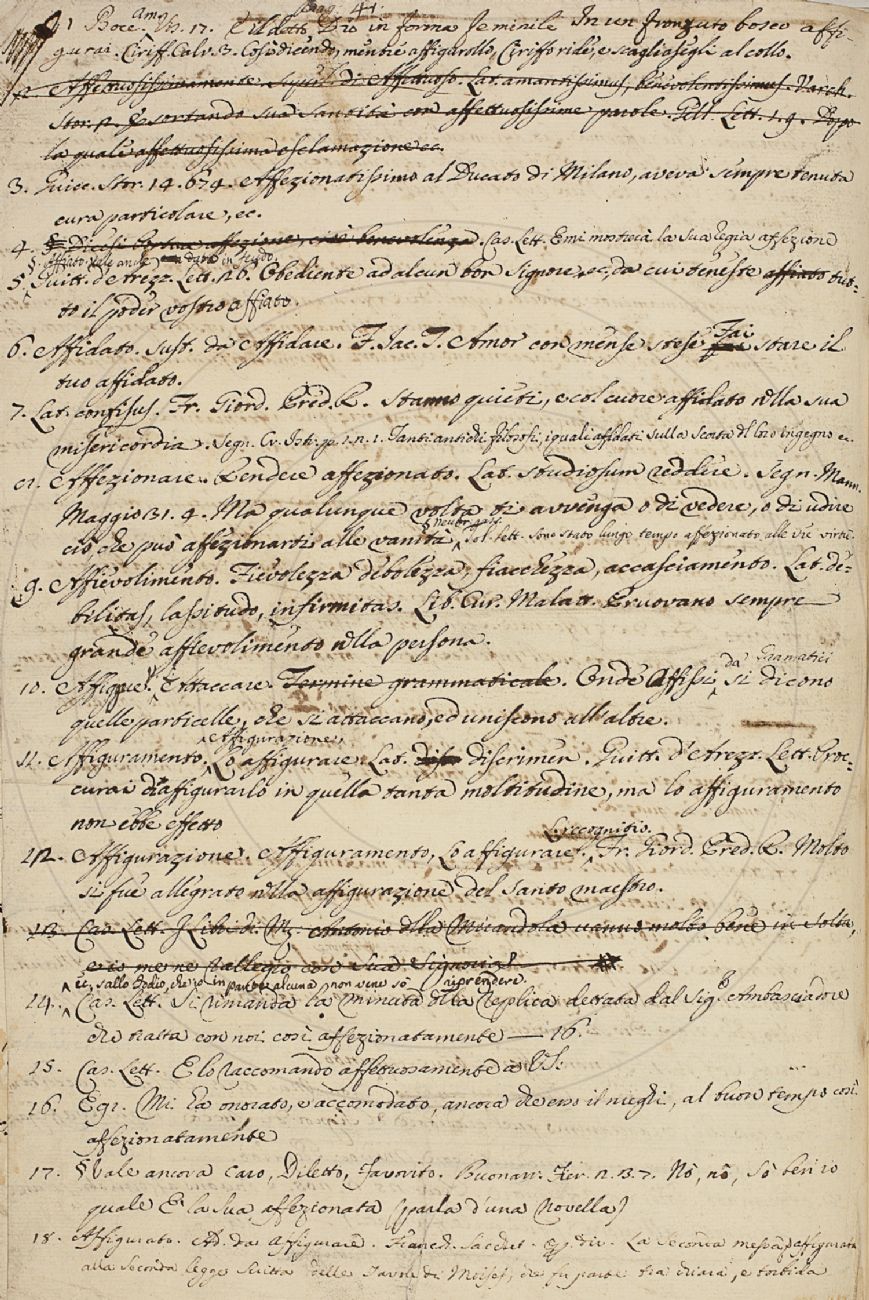 pag. 41.
1 Bocc. amo. Vis. 17. E il detto Dio in forma feminile In un fronzuto bosco affi-
gurai. Ciriff. Calv. 3. Così dicendo, mentre affigurollo, Ciriffo ride, e scagliasegli al collo.
2. Affettuosissimamente Superl. di Affettuoso. Lat. amantissimus, benevolentissimus. Varch.
Stor. 12. Esortando sua Santità con affettuosissime parole. Gell. Lett. 1. 9. Dopo
la quale affettuosissima esclamazione ec.
3. Guicc. Stor. 14. 674. Affezionatissimo al Ducato di Milano, aveva sempre tenuta
cura particolare, ec.
4. § Dicesi la sua affezione, cioè benevolenza. Cas. Lett. E mi mostrerà la sua regia affezione
§. Affiato vale anche dato in feudo.
5. Guitt. d'Arezz. Lett. 26. Obediente ad alcun bon Signore, ec, da cui teneste affiato tut-
to il poder vostro affiato.
6. Affidato. Sust. da Affidare. F. Jac. T. Amor con mense stese Fai stare il
tuo affidato.
7. Lat. confisus. Fr. Giord. Pred. R. Stanno quieti, e col cuore affidato nella sua
misericordia. Segn. Cr. Istr. p. 1. n. 1. Tanti antichi filosofi, i quali affidati sulla scorta del loro ingegno ec.
8. Affezionare. Rendere affezionato. Lat. studiosum reddere. Segn. Mann.
Maggio 31. 4. Ma qualunque volta ti avvenga o di vedere, o di udire
ciò, che può affezionarti alle vanità. § Neutr. pass. Tol. Lett. Sono stato lungo tempo affezionato alle vre virtù
9. Affievolimento. Fievolezza debolezza, fiacchezza, accasciamento. Lat. de-
bilitas, lassitudo, infirmitas. Lib. Cur. Malatt. Pruovano sempre
grande affievolimento nella persona.
10. Affiggere. V. Attaccare. Termine grammaticale. Onde Affissi da Gramatici si dicono
quelle particelle, che si attaccano, ed uniscono all'altre.
11. Affiguramento. Affigurazione, Lo affigurare. Lat. discrimen. Guitt. d'Arezz. Lett. Proc-
curai di affigurarlo in quella tanta moltitudine, ma lo affiguramento
non ebbe effetto
12. Affigurazione. Affiguramento, Lo affigurare. L. recognitio. Fr. Giord. Pred. R. Molto
si fue allegrato nella affigurazione del santo maestro.
13. Cas. Lett. I Libri di M. Antonio della Mirandola vanno molto bene in volta,
e io me ne rallegro con Sua Signoria
e, sallo Iddio, che io in parte alcuna non ve ne so riprendere.
14. Cas. Lett. Si rimanda la minuta della replica dettata dal Sigr. Ambasciadore
che tratta con noi così affezionatamente — 16.
15. Cas. Lett. E lo raccomando affettuosamente a VS.
16. Egr. Mi ha onorato, e accomodato, ancora che ero il meglio, al buon tempo così
affezionatamente
17. § Vale ancora Caro, Diletto, Favorito. Buonarr. Fier. 2. 3. 7. No, no, So ben io
quale E' la sua affezionata (parla d'una Novella)
18. Affigurato. Ad. da Affigurare. Franch. Sacchet. Op. div. La seconda messa affigurata
alla seconda legge scritta delle Tavole di Moises, che fu parte tra chiara, e torbida